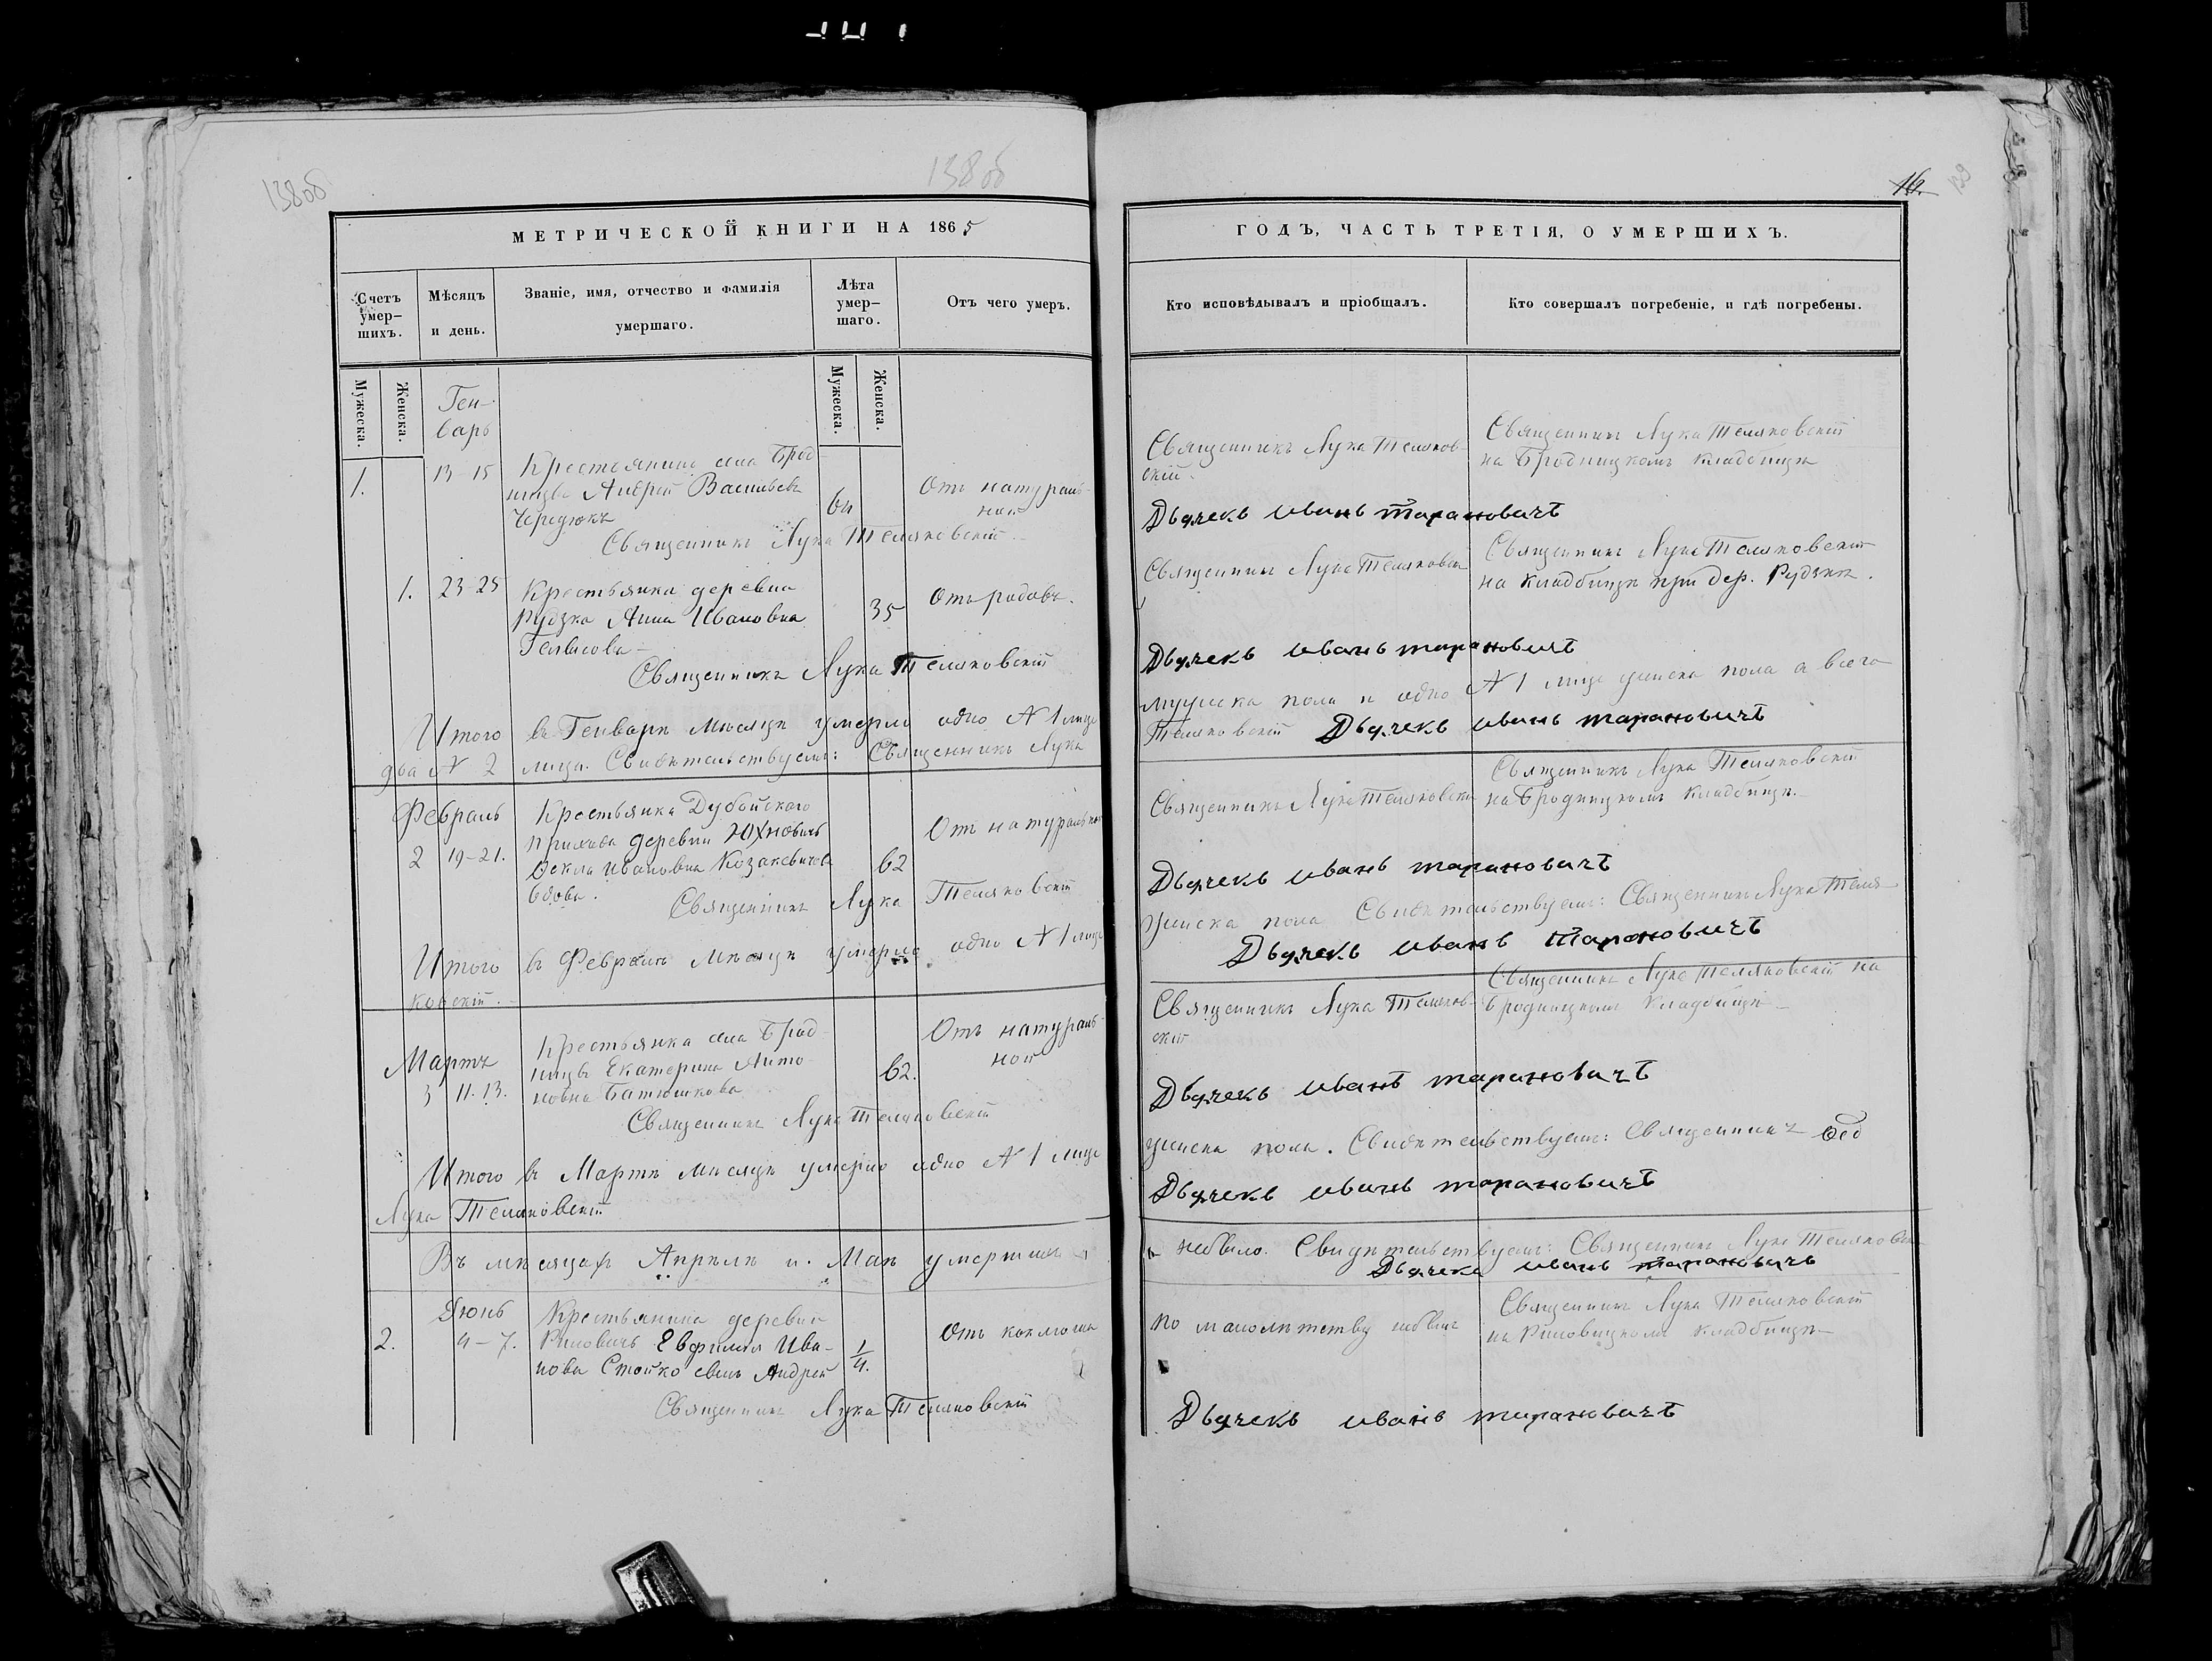 138об
138об
МЕТРИЧЕСКОЙ КНИГИ НА 1865
Счетъ умер-шихъ.
Мѣсяцъ и день.
Званіе, имя, отчество и фамилія умершаго.
Лѣта умер-шаго.
Отъ чего умеръ.
Мужеска.
Женска.
Мужеска.
Женска.
Ген-
варь
1.
13-15
Крестьянинъ села Брод-
ницъ Андрей Васильевъ
Чередюкъ
Отъ натураль-
ной
Священникъ Лука Теляковскій
1.
23-25
Крестьянка деревни
Рудзка Анна Ивановна
35
Отъ родовъ.
Священникъ Лука Теляковскій
Итого въ Генварѣ мѣсяцѣ умерло одно № 1 лице
два № 2 лица. Свидѣтельствуемъ: Священникъ Лука
Февраль
2
19-21.
Крестьянка Дубойскаго
прихода деревни Юхновичь
Ѳекла Ивановна Козакевичова
вдова.
62
Отъ натуральной
Священникъ Лука Теляковскій
Итого въ Февралѣ мѣсяцѣ умерло одно № 1 лице
ковскій.
Мартъ
3
11.13.
Крестьянка села Брод-
ницъ Екатерина Анто-
новна Батюшкова
62.
Отъ натураль-
ной
Священникъ Лука Теляковскій
Итого въ Мартѣ мѣсяцѣ умерло одно № 1 лице
Лука Теляковскій
Въ мѣсяцахъ Апрѣлѣ и Маѣ умершихъ
Іюнь
2.
4-7.
Крестьянина деревни
Евфимія Ива-
нова Стойко сынъ Андрей
1/4.
Отъ коклюша
Священникъ Лука Теляковскій
16.
ГОДЪ, ЧАСТЬ ТРЕТІЯ, О УМЕРШИХЪ.
Кто исповѣдывалъ и пріобщалъ.
Кто совершалъ погребеніе, и гдѣ погребены.
Священникъ Лука Теляков-
скій.
Священникъ Лука Теляковскій
на Бродницкомъ кладбищѣ
Дьячекъ иванъ тарановичъ
Священникъ Лука Теляковскій
Священникъ Лука Теляковскій
на кладбищѣ при дер. Рудзкѣ.
Дьячекъ иванъ тарановичъ
мужеска пола и одно № 1 лице женска пола а всего
Теляковскій Дьячекъ иванъ тарановичъ
Священникъ Лука Теляковскій
Священникъ Лука Теляковскій
на Бродницкомъ кладбищѣ.
Дьячекъ иванъ тарановичъ
женска пола Свидѣтельствуемъ: Священникъ Лука Теля-
Дьячекъ иванъ тарановичъ
Священникъ Лука Теляков-
скій
Священникъ Лука Теляковскій на
Бродницкомъ кладбищѣ
Дьячекъ иванъ тарановичъ
женска пола. Свидѣтельствуемъ: Священникъ
Дьячекъ иванъ тарановичъ
небыло. Свидѣтельствуемъ: Священникъ Лука Теляковскій
Дьячекъ иванъ тарановичъ
по малолѣтству небылъ
Священникъ Лука Теляковскій
кладбищѣ
Дьячекъ иванъ тарановичъ